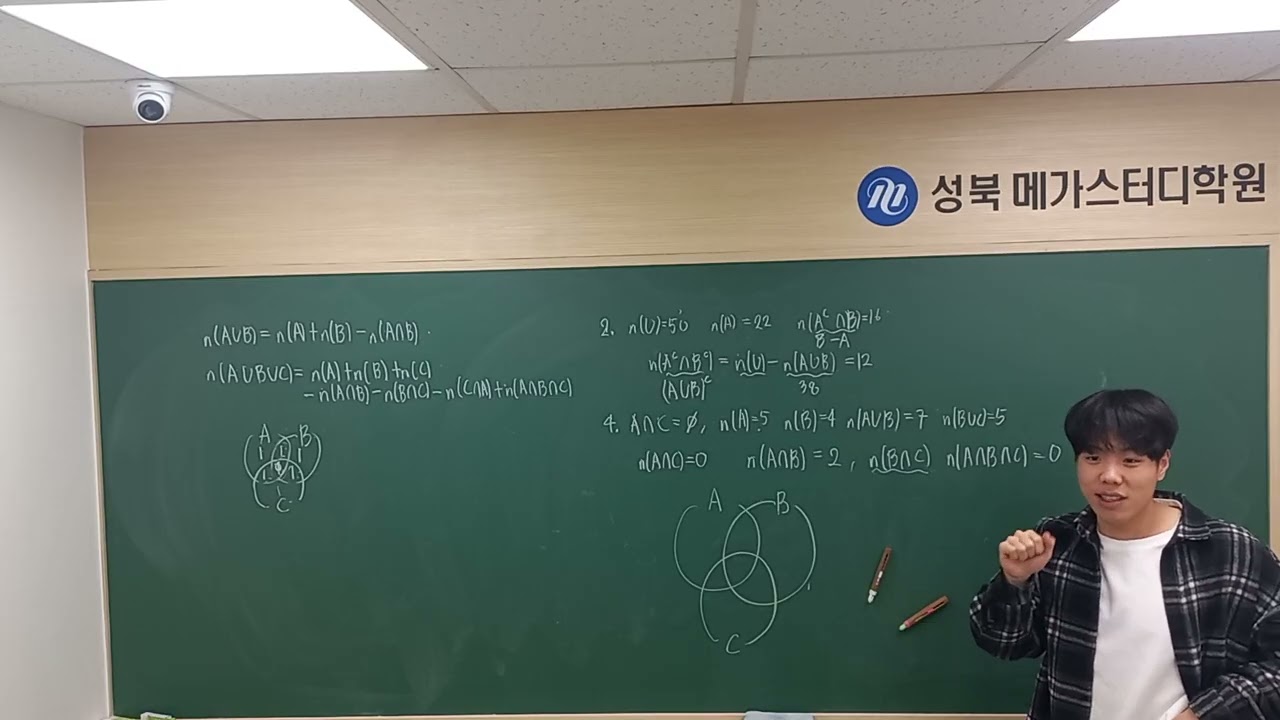 성북 메가스터디학원
n(A∪B) = n(A)+n(B)-n(A∩B).
n(A∪B∪C) = n(A)+n(B)+n(C)
-n(A∩B)-n(B∩C)-n(C∩A)+n(A∩B∩C)
A B
C
2. n(U)=50 n(A)=22 n(A^c∩B)=16
B-A
n(A^c∩B^c) = n(U)-n(A∪B) =12
(A∪B)^c 38
4. A∩C=∅, n(A)=5 n(B)=4 n(A∪B)=7 n(B∪C)=5
n(A∩C)=0 n(A∩B)=2, n(B∩C) n(A∩B∩C)=0
A B
C